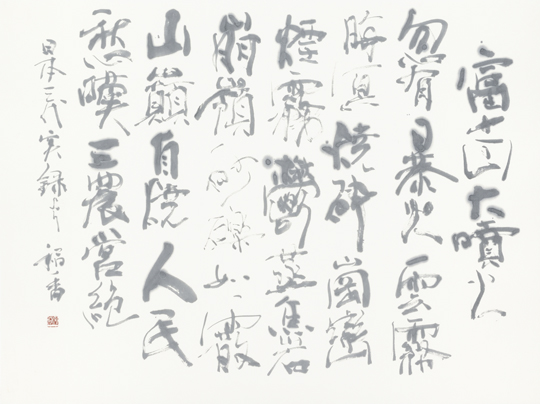 富士山大噴火
忽有暴火雲霧
晦冥焼砕崗巒
煙霧鬱蒸焦
崩嶺砂礫如霰
山巓自焼人民
愁嘆三農営絶
日本三代実録より